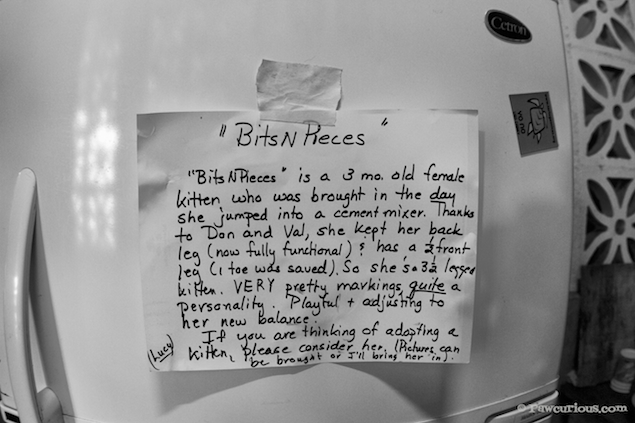 Cetron
"BitsNPieces"
"BitsNPieces" is a 3 mo. old female
kitten, who was brought in the day
she jumped into a cement mixer. Thanks
to Don and Val, she kept her back
leg (now fully functional) & has a ½ front
leg (1 toe was saved). So she's a 3½ legged
kitten. VERY pretty markings, quite a
personality. Playful + adjusting to
her new balance.
If you are thinking of adopting a
kitten, please consider her. (Pictures can
be brought or I'll bring her in).
(Lucy)
© Pawcurious.com